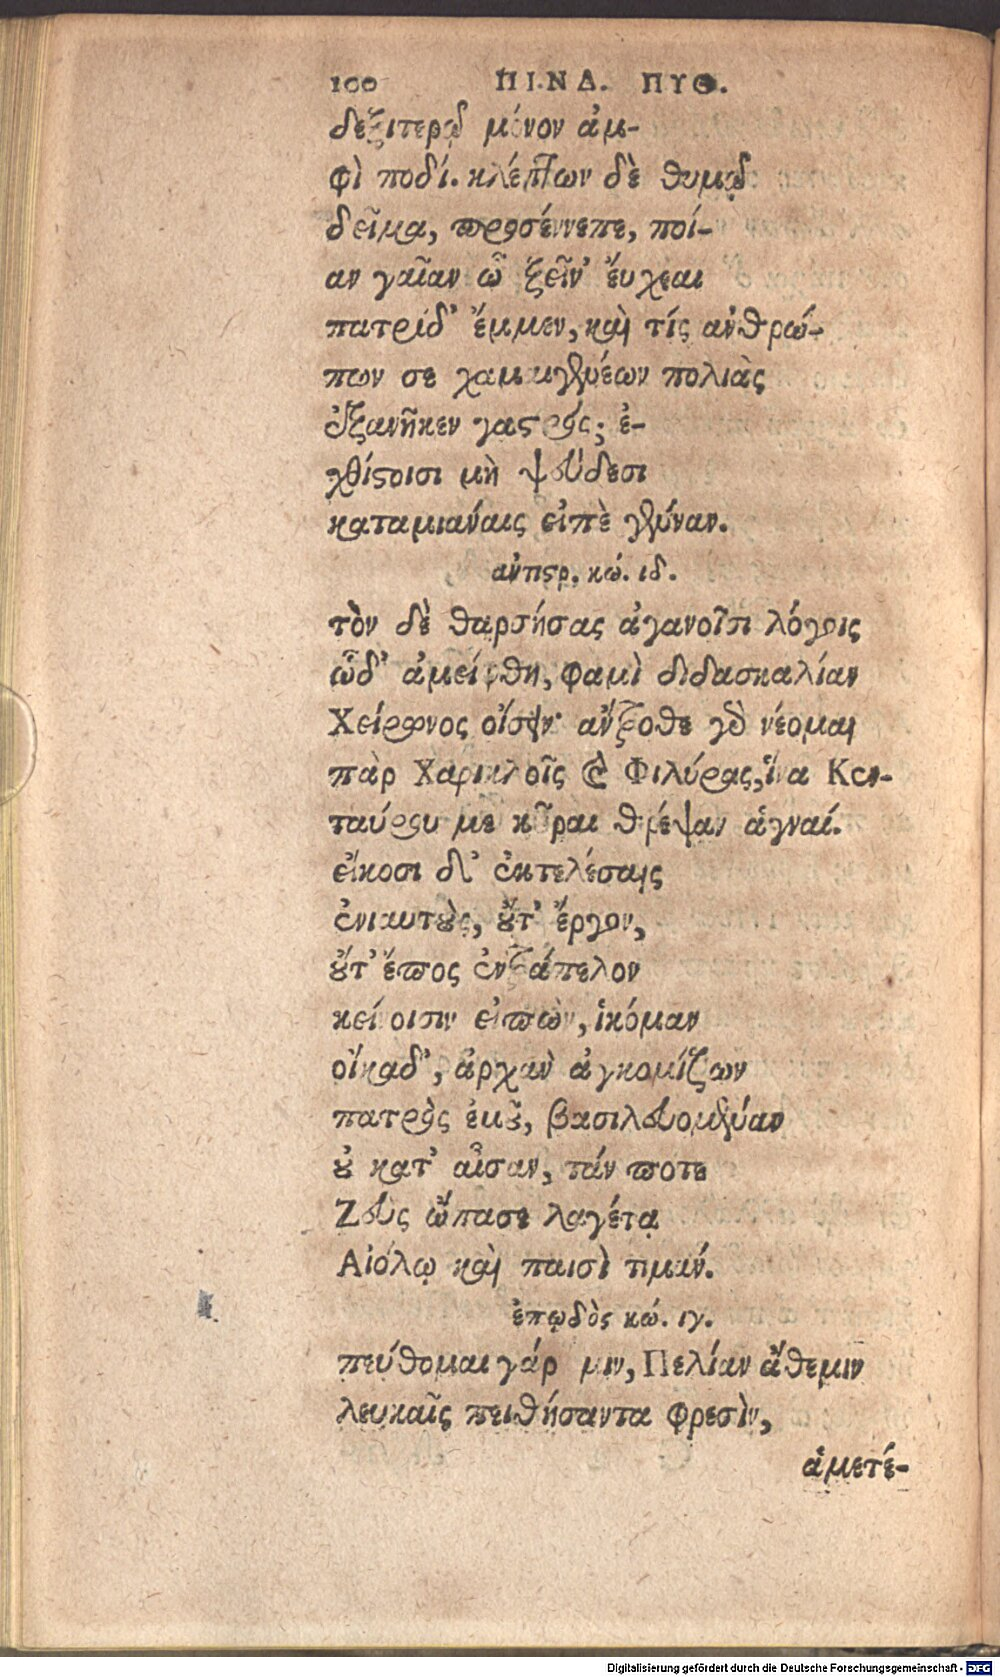 100 ΠΙΝΔ. ΠΥΘ.
δεξιτερῷ μόνον ἀμ-
φὶ ποδί. κλέπτων δὲ θυμῷ
δεῖμα, προσέννεπε, ποί-
αν γαῖαν ὦ ξεῖν' ἔυχεαι
πατρίδ' ἔμμεν, καὶ τίς ἀνθρώ-
πων σε χαμαιγενέων πολιᾶς
ἐξανῆκεν γαστρός; ἐ-
χθίστοισι μὴ ψεύδεσι
καταμιάναις εἰπὲ γένναν.
ἀντιστρ. κώ. ιδ.
τὸν δὲ θαρσήσας ἀγανοῖσι λόγοις
ὧδ' ἀμείφθη, φαμὶ διδασκαλίαν
Χείρωνος οἴσειν· ἄντροθε γὰρ νέομαι
πὰρ Χαρικλοῖς καὶ Φιλύρας, ἵνα Κεν-
ταύρου με κοῦραι θρέψαν ἁγναί.
εἴκοσι δ' ἐκτελέσαις
ἐνιαυτοὺς, οὔτ' ἔργον,
οὔτ' ἔπος ἐντράπελον
κείνοισιν εἰπὼν, ἱκόμαν
οἴκαδ', ἀρχὰν ἀγκομίζων
πατρὸς ἐμοῦ, βασιλευομέναν
οὐ κατ' αἶσαν, τάν ποτε
Ζεὺς ὤπασε λαγέτᾳ
Αἰόλῳ καὶ παισὶ τιμάν.
ἐπῳδὸς κώ. ιγ.
πεύθομαι γάρ μιν, Πελίαν ἄθεμιν
λευκαῖς πειθήσαντα φρεσὶν,
ἁμετέ-
Digitalisierung gefördert durch die Deutsche Forschungsgemeinschaft - DFG